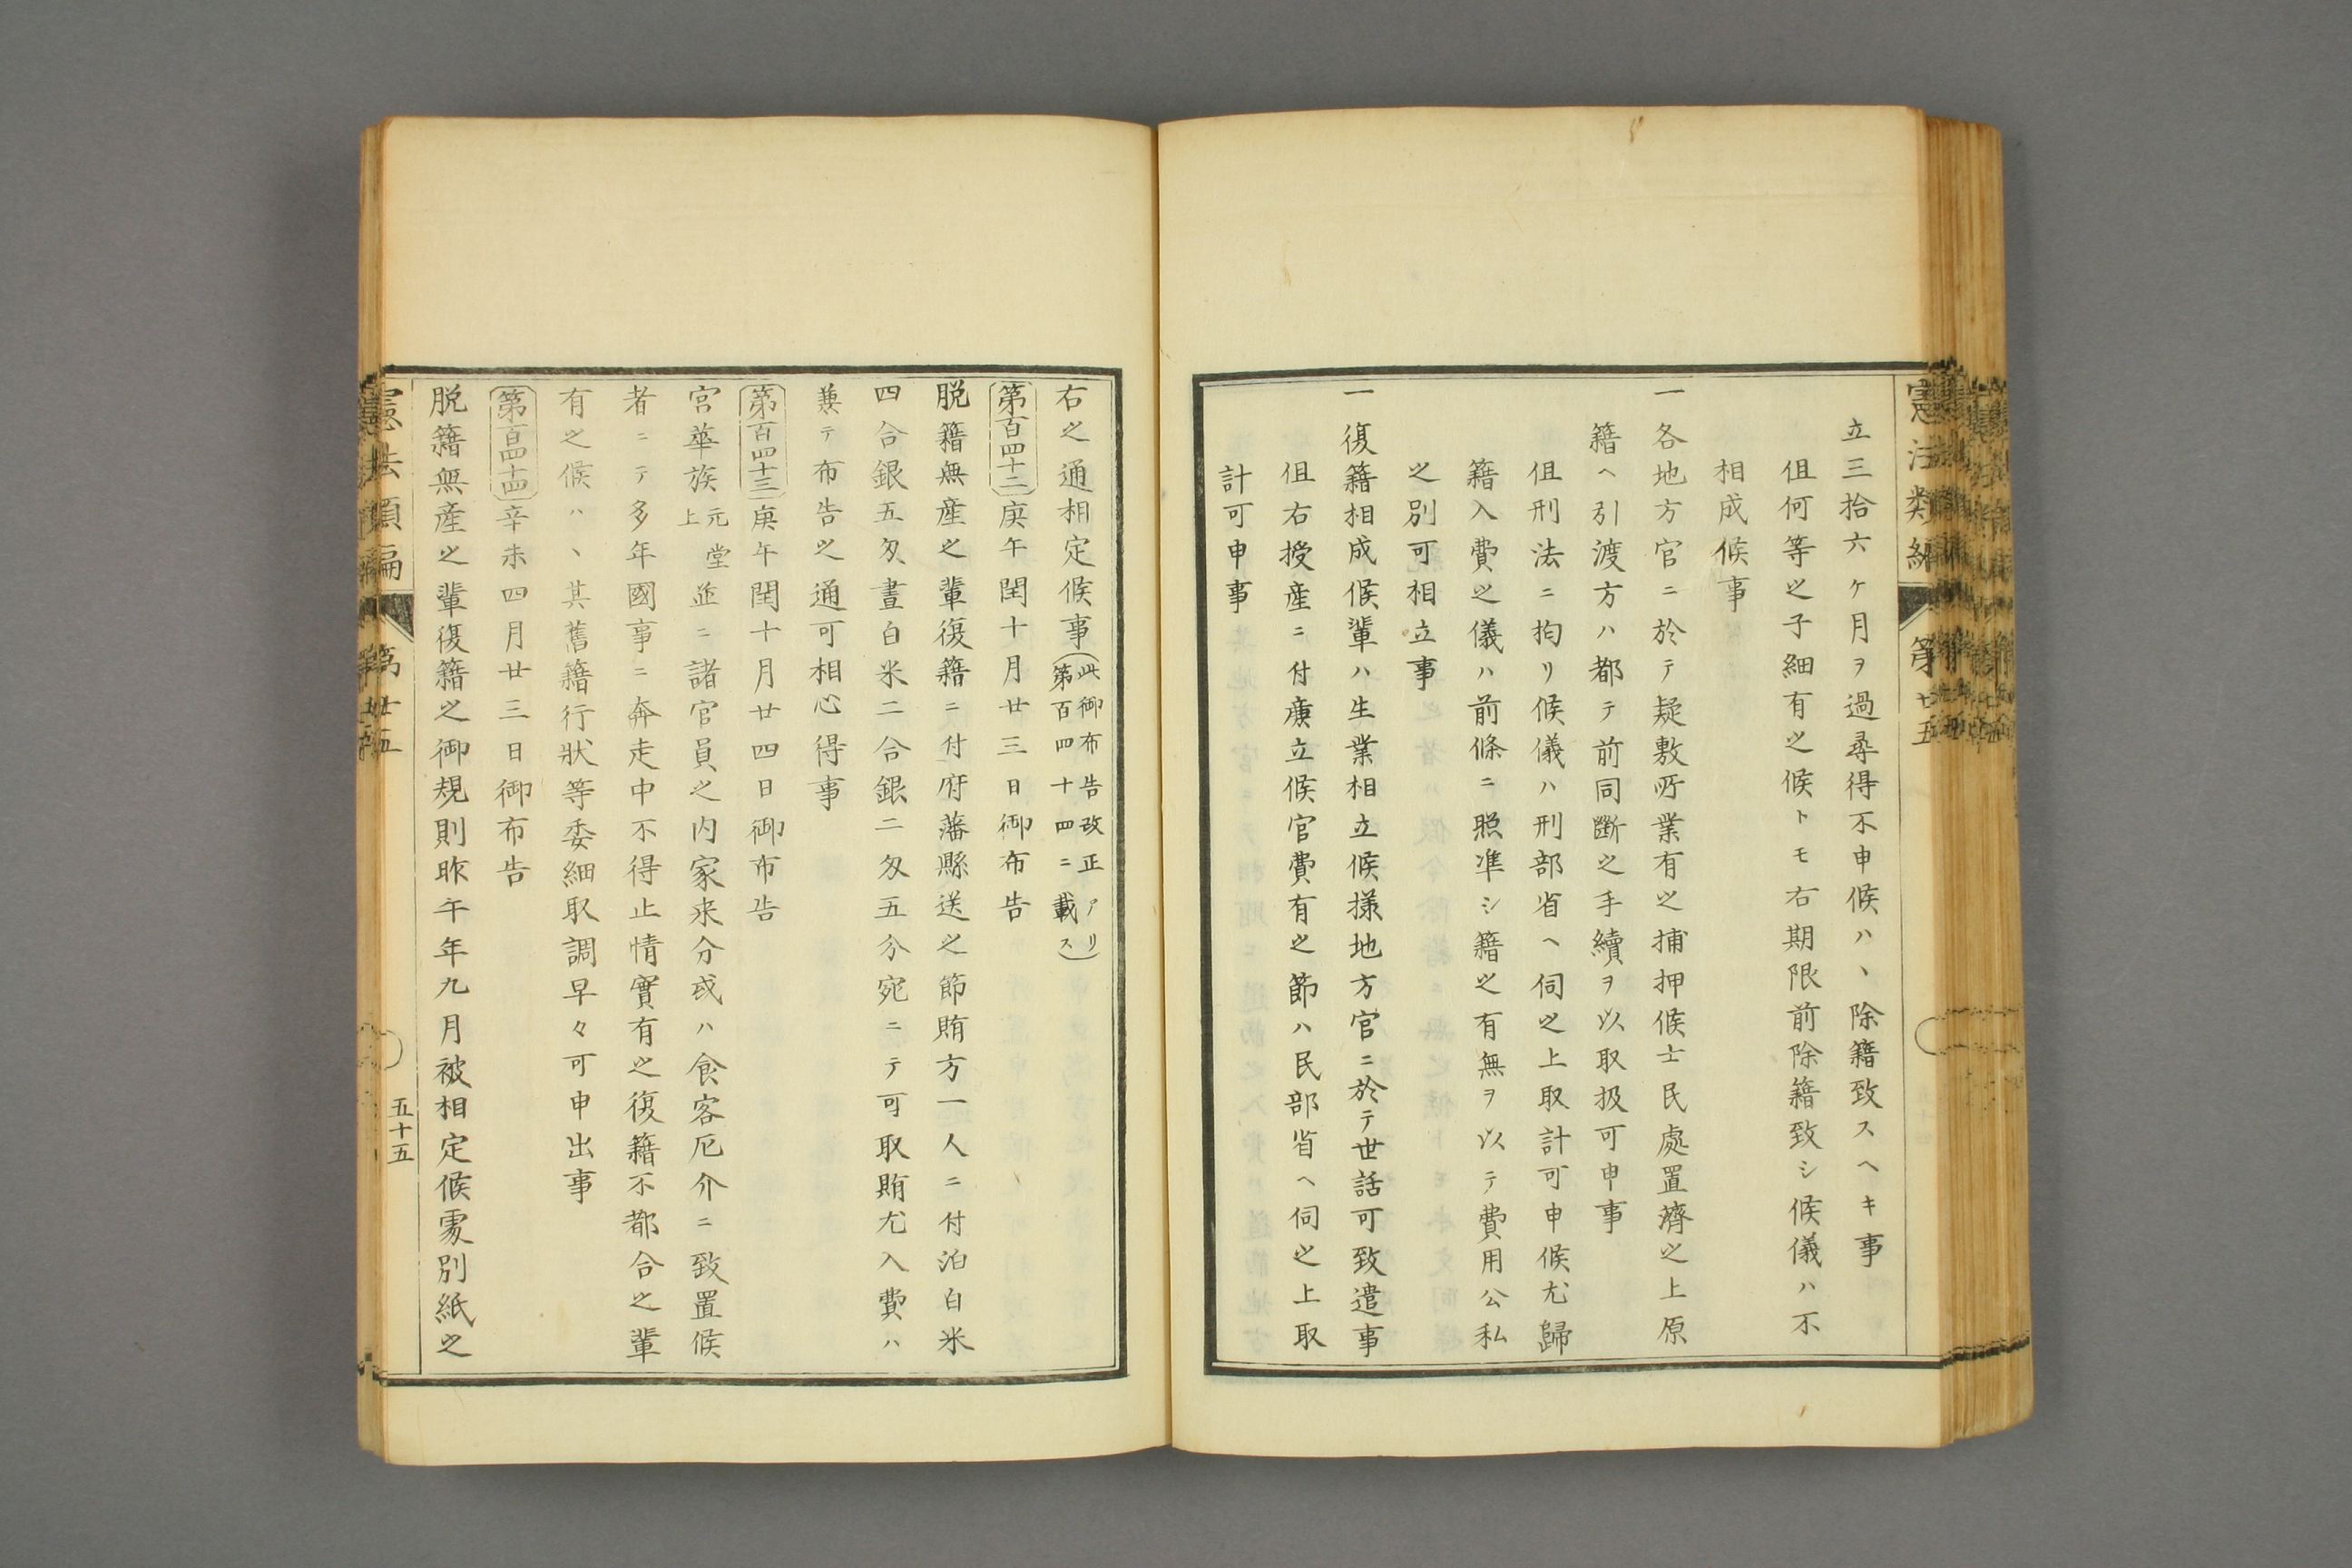 憲法類編
第廿五
立三拾六ケ月ヲ過尋得不申候ハヽ除籍致スヘキ事
但何等之子細有之候トモ右期限前除籍致シ候儀ハ不
相成候事
一各地方官ニ於テ疑敷所業有之捕押候士民處置濟之上原
籍ヘ引渡方ハ都テ前同斷之手續ヲ以取扱可申事
但刑法ニ拘リ候儀ハ刑部省ヘ伺之上取計可申候尤歸
籍入費之儀ハ前條ニ照準シ籍之有無ヲ以テ費用公私
之別可相立事
一復籍相成候輩ハ生業相立候様地方官ニ於テ世話可致遣事
但右授産ニ付廉立候官費有之節ハ民部省ヘ伺之上取
計可申事
右之通相定候事(此御布告改正アリ第百四十四ニ載ス)
第百四十二庚午閏十月廿三日御布告
脱籍無産之輩復籍ニ付府藩縣送之節賄方一人ニ付泊白米
四合銀五匁晝白米二合銀二匁五分宛ニテ可取賄尤入費ハ
兼テ布告之通可相心得事
第百四十三庚午閏十月廿四日御布告
宮華族元堂上並ニ諸官員之内家来分或ハ食客厄介ニ致置候
者ニテ多年國事ニ奔走中不得止情實有之復籍不都合之輩
有之候ハヽ其舊籍行狀等委細取調早々可申出事
第百四十四辛未四月廿三日御布告
脱籍無産之輩復籍之御規則昨午年九月被相定候處別紙之
憲法類編
第廿五
五十五